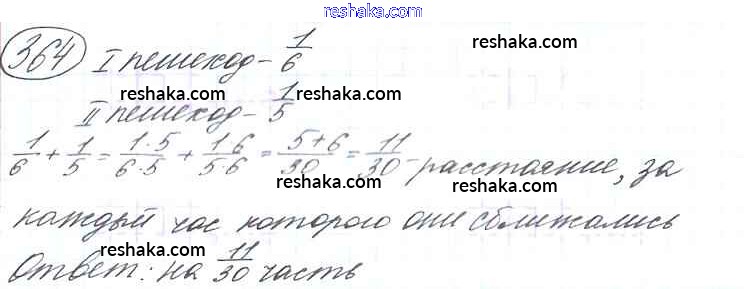 reshak.ru
364 I пешеход - 1/6 reshaka.com
reshaka.com
II пешеход - 1/5 reshaka.com
1/6 + 1/5 = 1·5/6·5 + 1·6/5·6 = 5+6/30 = 11/30 - расстояние, за
reshaka.com reshaka.com
каждый час которого они сближались
reshaka.com
Ответ: на 11/30 часть